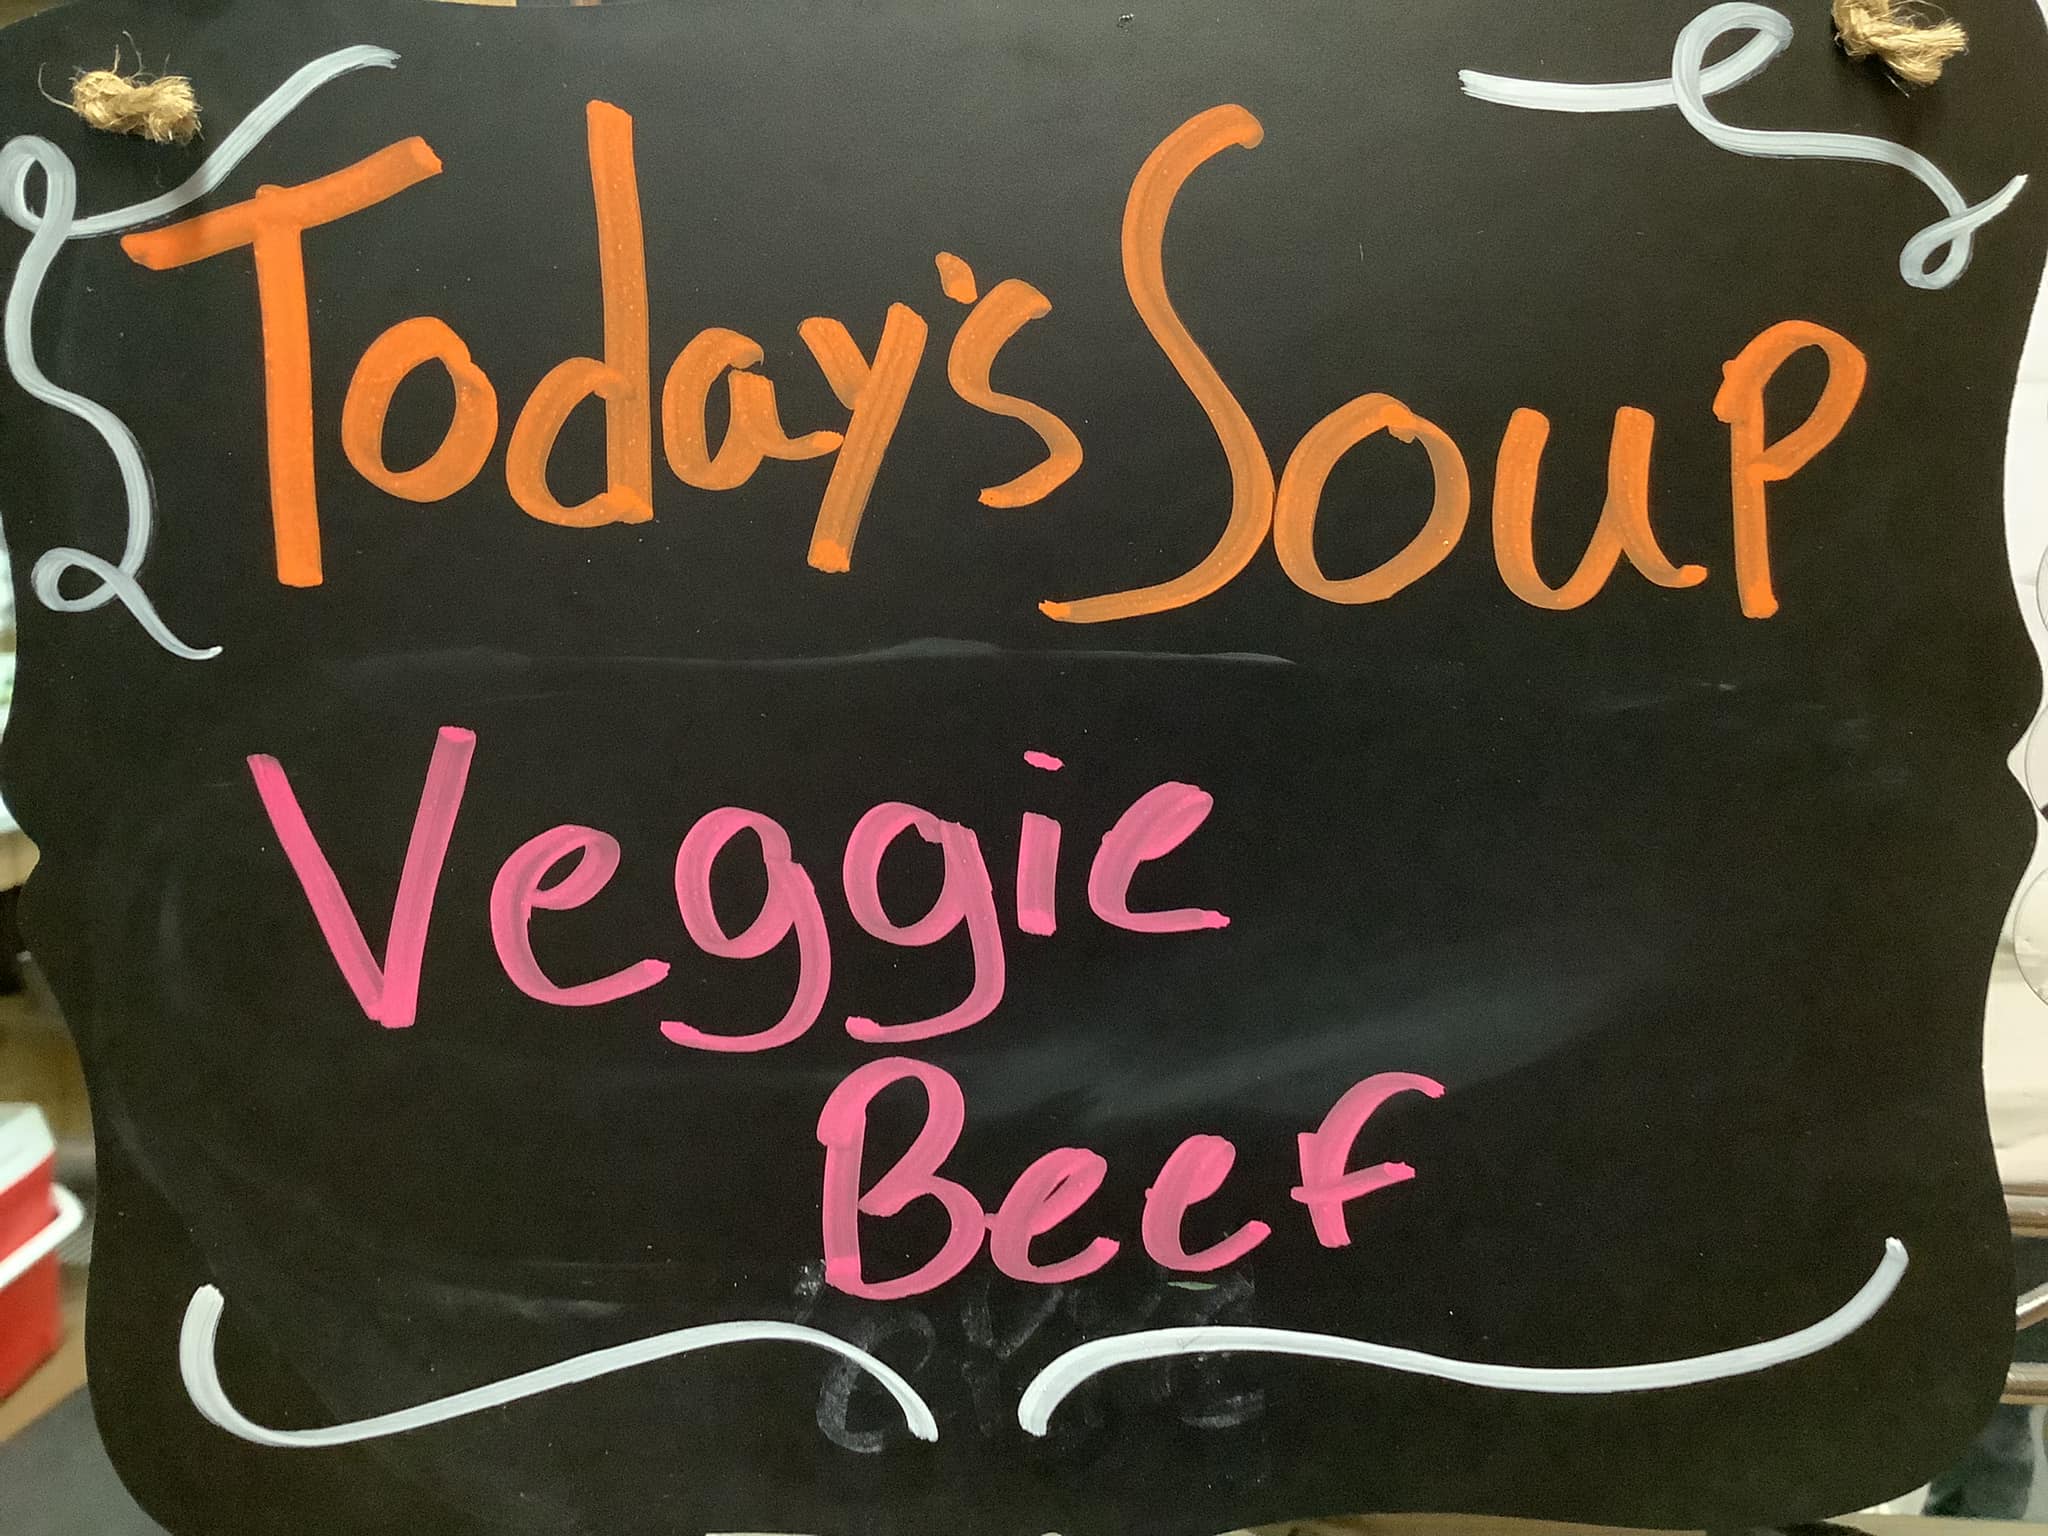 Today's Soup
Veggie
Beef